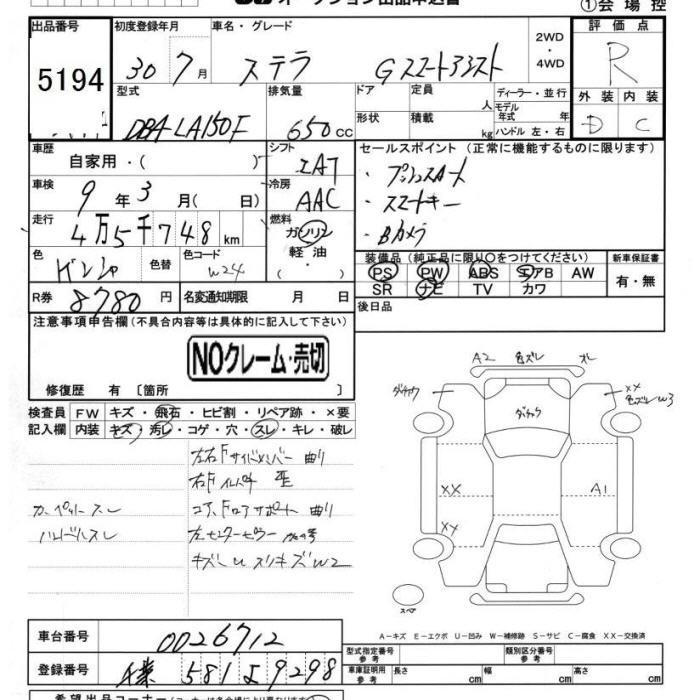 オークション出品申込書
①会場控
出品番号
5194
初度登録年月
30 7月
車名・グレード
ステラ Gスマートアシスト
2WD
・
4WD
評価点
R
外装 内装
D C
型式
DBA-LA150F
排気量
650cc
ドア
形状
定員 人
積載 kg
ディーラー・並行
モデル年式 年
ハンドル 左・右
車歴
自家用・( )
シフト
IAT
車検
9年3月( 日)
冷房
AAC
走行
4万5千748km
燃料
ガソリン
軽油
・( )
色
色替
色コード
W24
R券
8780円
名変通知期限 月 日
セールスポイント(正常に機能するものに限ります)
・プッシュスタート
・スマートキー
・Bカメラ
装備品(純正品に限り○をつけてください)
PS PW ABS エアB AW
SR ナビ TV カワ
新車保証書
有・無
後日品
注意事項申告欄(不具合内容等は具体的に記入して下さい)
NOクレーム・売切
修復歴 有〔箇所 〕
検査員記入欄
FW キズ・飛石・ヒビ割・リペア跡・×要
内装 キズ・汚れ・コゲ・穴・スレ・キレ・破レ
左右Fサイドメンバー 曲り
右Fインパネ 歪
コア、Fロアサポート 曲り
カーペットスレ
ハンドルスレ
キズU スリキズW2
A2 色ズレ
ダメージ
XX
色ズレW3
XX
XX
A1
スペア
A-キズ E-エクボ U-凹み W-補修跡 S-サビ C-腐食 XX-交換済
車台番号
0026712
登録番号
581 よ 9298
型式指定番号
参考
類別区分番号
参考
車庫証明用
参考
長さ cm 幅 cm 高さ cm
希望出品コーナー